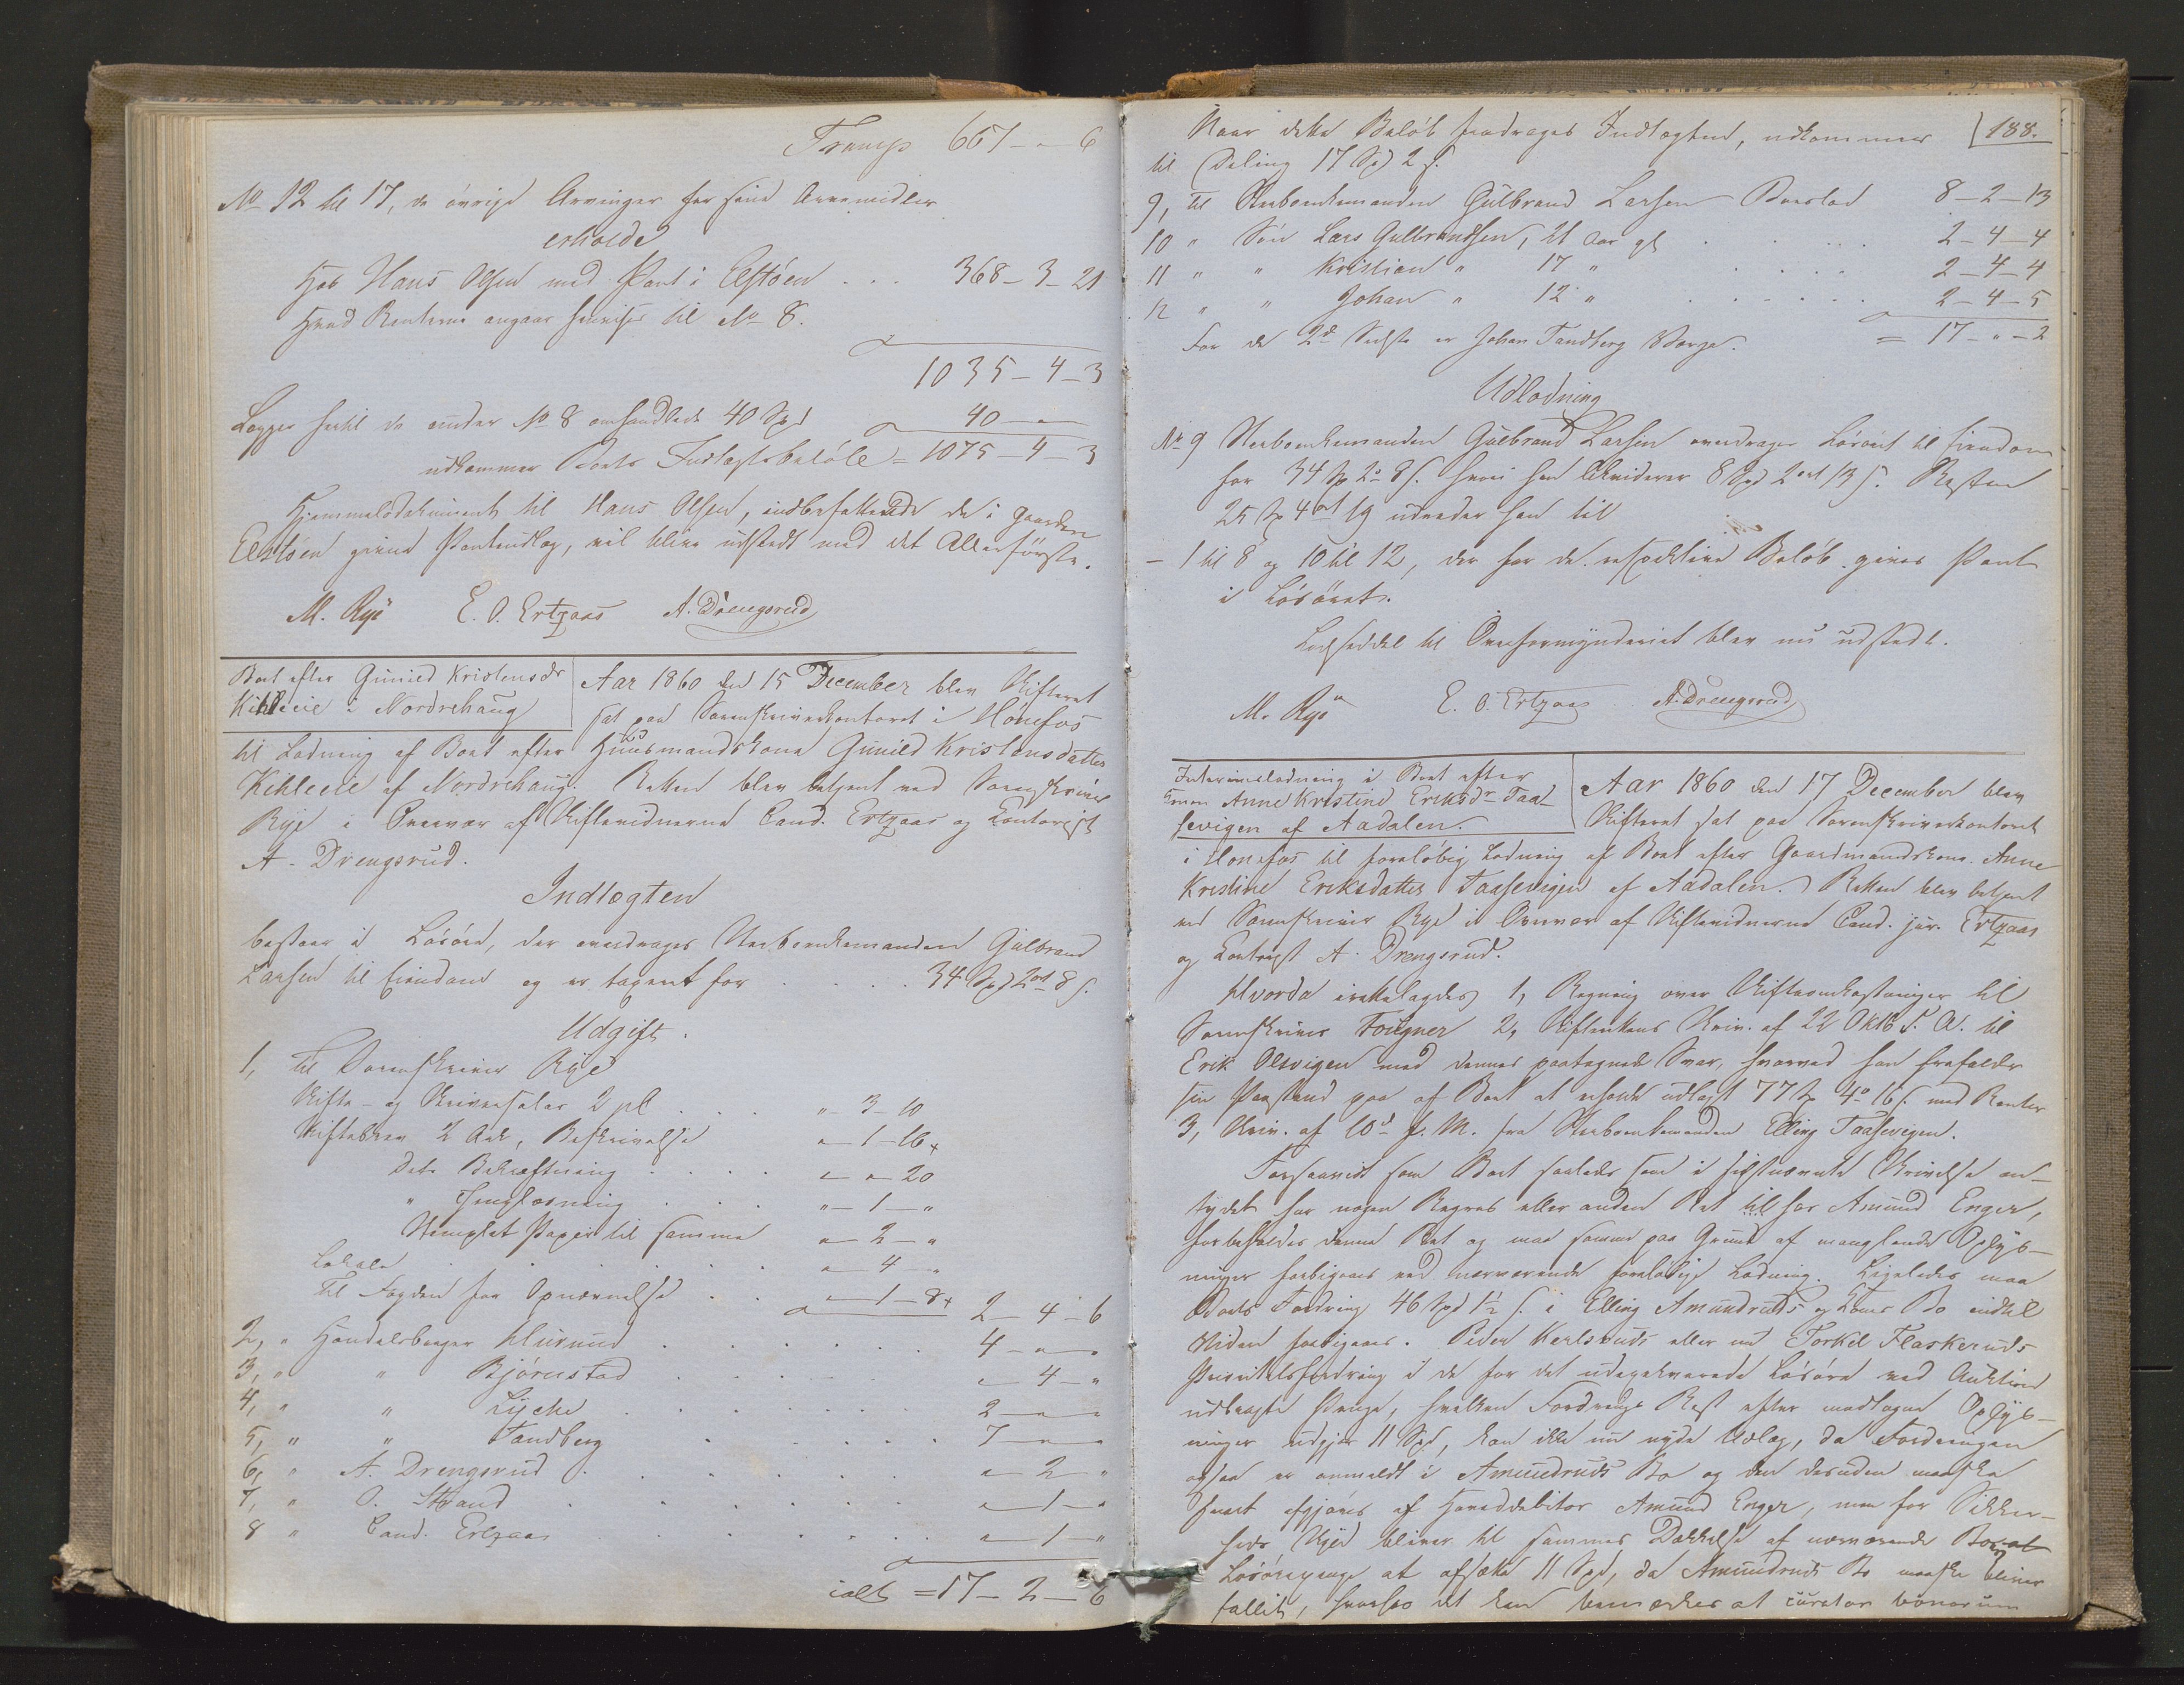 Transp 667 - " - 6
No 12 til 17, de øvrige Arvinger for sine Arvemidler
erholde
hos Hans Olsen med Pant i Elstøen . . . 368 - 3 - 21
Hvad Renterne angaar henvises til No 8.
1035 - 4 - 3
Lægges hertil de under No 8 omhandlede 40 Spd 40 - " - "
udkommer Boets Indtægtsbeløb = 1075 - 4 - 3
Hjemmelsdokument til Hans Olsen, indbefattende de i Gaarden
Elstøen givne Pantudlæg, vil blive udstedt med det Allerførste.
M. Rye E. O. Ertzaas A. Drengsrud
Boet efter Gunild Kristensdr
Kihleeie i Nordrehaug
Aar 1860 den 15 December blev Skifteret
sat paa Sorenskriverkontoret i Hønefos
til Lodning af Boet efter Huusmandskone Gunild Kristensdatter
Kihleeie af Nordrehaug. Retten blev betjent ved Sorenskriver
Rye i Overvær af Skiftevidnerne Cand. Ertzaas og Kontorist
A. Drengsrud.
Indtægten
bestaar i Løsøre, der overdrages Sterboenkemanden Gulbrand
Larsen til Eiendom og er taxeret for . . . . . 34 Spd 2 ort 8 s.
Udgift.
1, Til Sorenskriver Rye
Skifte- og Skriversalær 2 pCt . . . " - 3 - 10
Skiftebrev 2 Ark, Beskrivelse " - 1 - 16 +
Dets Bekræftning . . . . " - " - 20
" Thinglæsning . . . " - 1 - "
Stemplet Papir til samme " - 2 - "
Lokale . . . . . . " - 4 - "
Til Fogden for Opnævnelse . . " - 1 - 8 + 2 - 4 - 6
2, " Handelsborger Hurum . . . . . . 4 - " - "
3, " " Bjørnstad . . . . . " - 4 - "
4, " " Lyche . . . . . . 2 - " - "
5, " " Tandberg . . . . . 7 - " - "
6, " A. Drengsrud . . . . . . " - 2 - "
7, " O. Strand . . . . . . " - 1 - "
8 " Cand. Ertzaas . . . . . . " - 1 - "
ialt = 17 - 2 - 6
188.
Naar dette Beløb fradrages Indtægten, udkommer
til Deling 17 Spd 2 s.
9, Til Sterboenkemanden Gulbrand Larsen Boeslod 8 - 2 - 13
10 " Søn Lars Gulbrandsen, 21 Aar gl . . . . 2 - 4 - 4
11 " " Kristian " 17 " . . . . . 2 - 4 - 4
12 " " Johan " 12 " . . . . . . 2 - 4 - 5
For de 2de Sidste er Johan Tandberg Værge. = 17 - " - 2
Udlodning
No 9 Sterboenkemanden Gulbrand Larsen overdrages Løsøret til Eiendom
for 34 Sp 2 o 8 s. hvori han likviderer 8 Spd 2 ort 13 s. Resten
25 Sp 4 ort 19 udreder han til
- 1 til 8 og 10 til 12, der for de respektive Beløb gives Pant
i Løsøret.
Lodseddel til Overformynderiet blev nu udstedt.
M. Rye E. O. Ertzaas A. Drengsrud
Interimslodning i Boet efter
Konen Anne Kristine Eriksdr Taa-
sevigen af Aadalen.
Aar 1860 den 17 December blev
Skifteret sat paa Sorenskriverkontoret
i Hønefos til foreløbig Lodning af Boet efter Gaardmandskone Anne
Kristine Eriksdatter Taasevigen af Aadalen. Retten blev betjent
ved Sorenskriver Rye i Overvær af Skiftevidnerne Cand. jur. Ertzaas
og Kontorist A. Drengsrud.
Hvorda irettelagdes 1, Regning over Skifteomkostninger til
Sorenskriver Fougner 2, Skifterettens Skriv. af 22 Oktb d. A. til
Erik Olsvigen med dennes paategnede Svar, hvorved han frafalder
sin Paastand paa af Boet at erholde udlagt 77 Sp 4 o 16 s. med Renter
3, Skriv. af 10de f. M. fra Sterboenkemanden Elling Taasevigen.
Forsaavidt som Boet saaledes som i sidstnævnte Skrivelse an-
tydet har nogen Regres eller anden Ret til hos Amund Enger,
forbeholdes denne Ret og maa samme paa Grund af manglende Oplys-
ninger forbigaaes ved nærværende foreløbige Lodning. Ligeledes maa
Boets Fordring 46 Spd 1½ s. i Elling Amundruds og Kones Bo indtil
Viden forbigaaes. Peder Karlsruds eller nu Torkel Flaskeruds
Prioritetsfordring i de for det udpantede Løsøre ved Auktion
udbragte Penge, hvilken Fordrings Rest efter modtagne Oplys-
ninger udgjør 11 Spd, kan ikke nu nyde Udlæg, da Fordringen
ogsaa er anmeldt i Amundruds Bo og den desuden maaske
snart afgjøres af Hoveddebitor Amund Enger, men for Sikker-
heds Skyld bliver til sammes Dækkelse af nærværende Boes
Løsørepenge at afsætte 11 Spd, da Amundruds Bo maaske bliver
fallit, hvorhos det kan bemærkes at curator bonorum